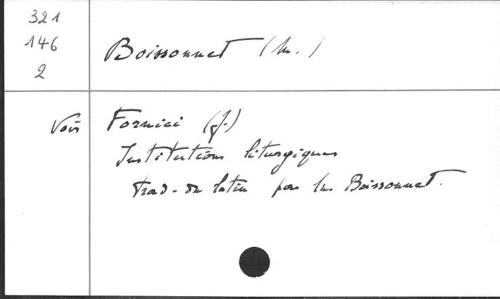 321
146
2
Boissonnet (M.)
Voir Fornici (J.)
Institutions liturgiques
trad. du latin par M. Boissonnet.